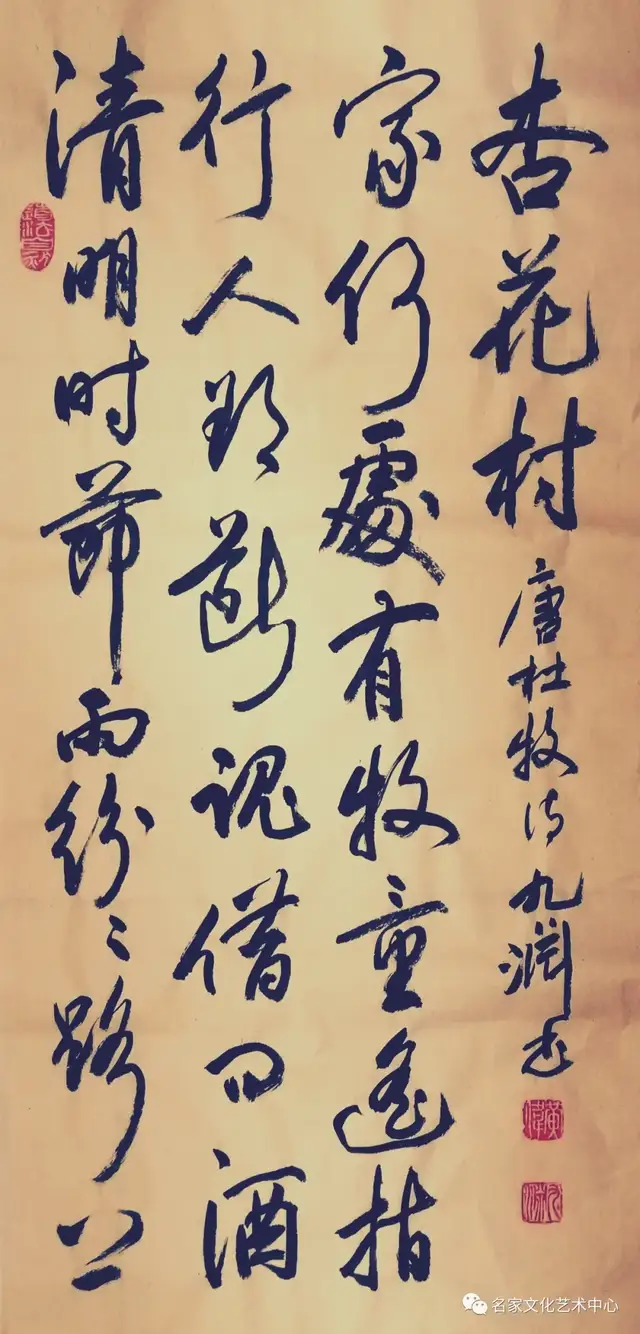 清明时節雨纷〻路上
行人欲斷魂借问酒
家何處有牧童遙指
杏花村
唐杜牧诗九渊书
名家文化艺术中心